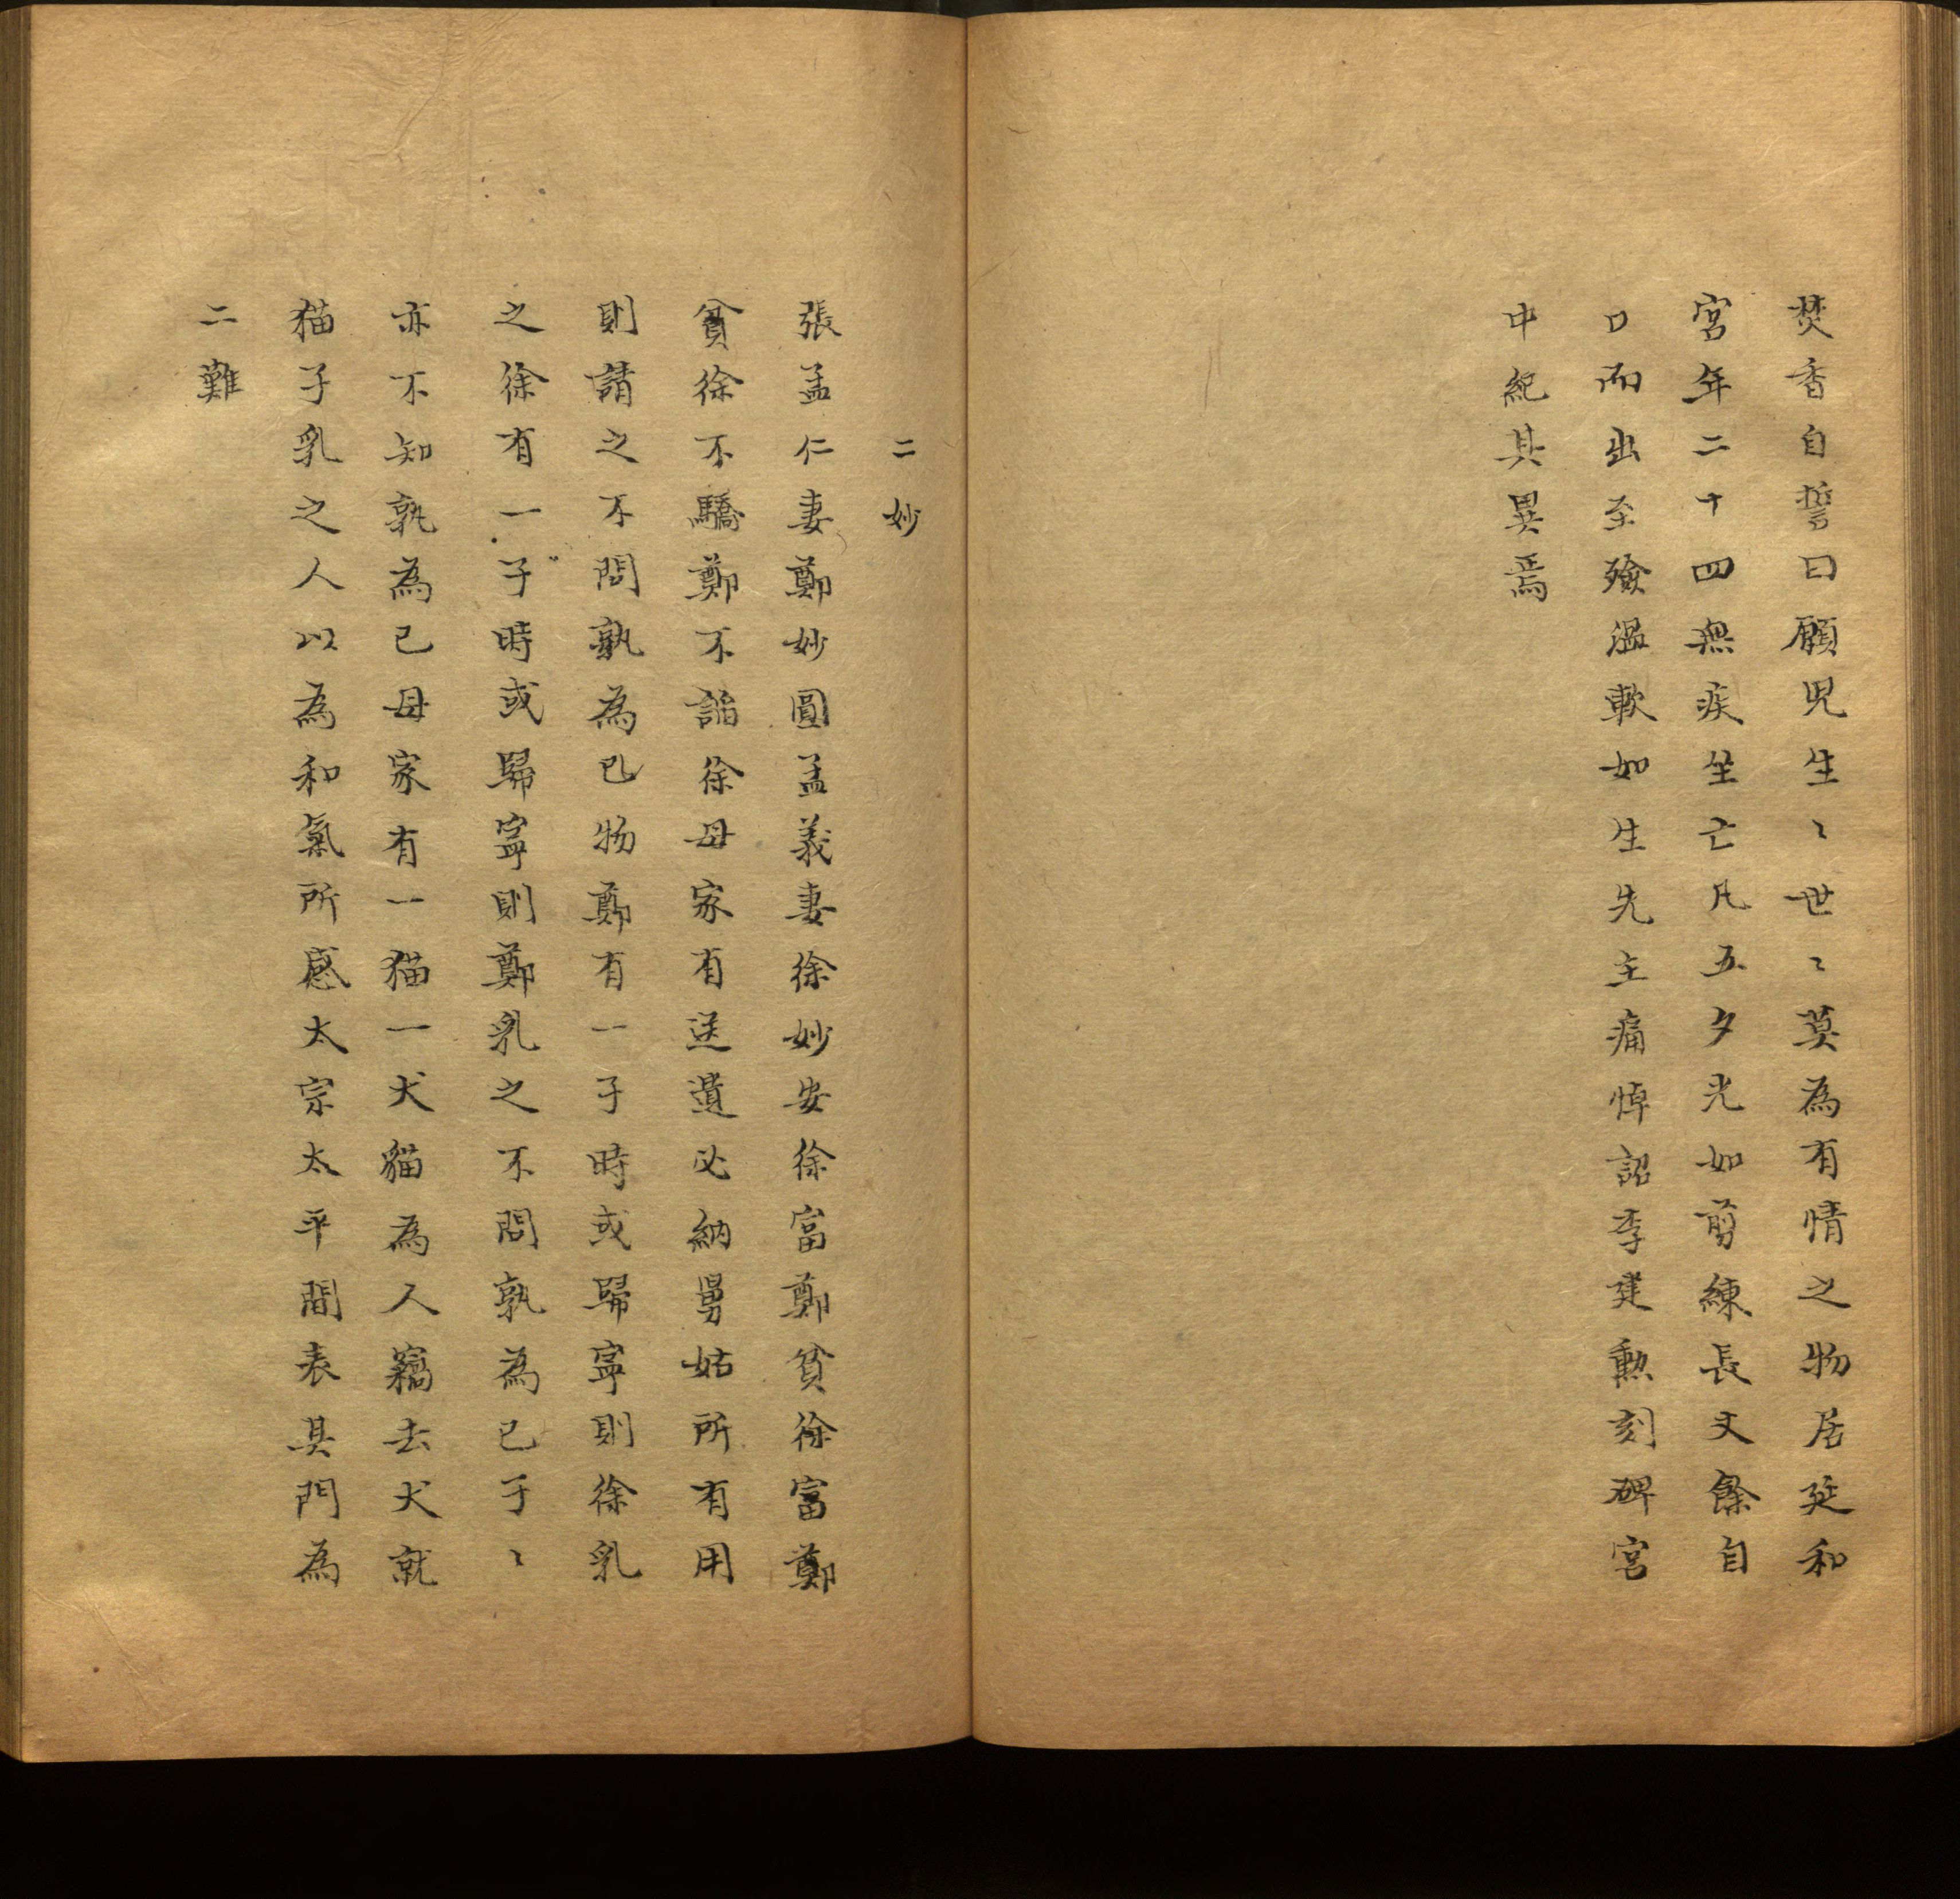 焚香自誓曰願児生〻世〻莫為有情之物居延和
宮年二十四無疾坐亡凡五夕光如剪練長丈餘自
口而出至殮溫軟如生先主痛悼詔李建勲刻碑宮
中紀其異焉
二妙
張孟仁妻鄭妙圓孟義妻徐妙安徐富鄭貧徐富鄭
貧徐不驕鄭不諂徐母家有送遺必納舅姑所有用
則請之不問孰為已物鄭有一子時或歸寧則徐乳
之徐有一子時或歸寧則鄭乳之不問孰為已子〻
亦不知孰為已母家有一猫一犬貓為人竊去犬就
猫子乳之人以為和氣所感太宗太平間表其門為
二難